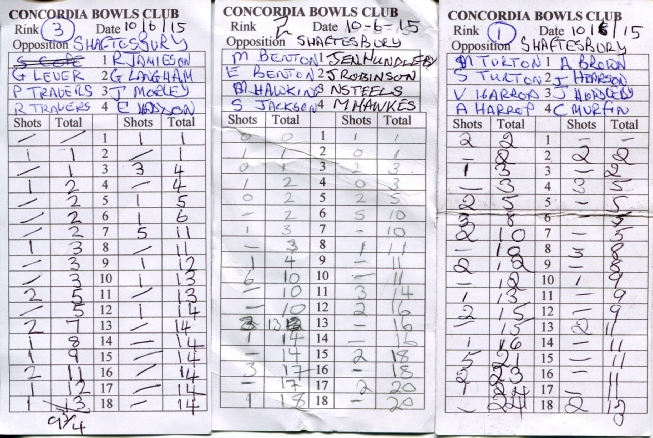 CONCORDIA BOWLS CLUB
Rink 3 Date 10/6/15
Opposition SHAFTESBURY
1 R JAMIESON
G LEVER 2 G LANGHAM
P TRAVERS 3 T MORLEY
R TRAVERS 4 E HODSON
Shots Total Shots Total
/ / 1 1 1
1 1 2 / 1
/ 1 3 3 4
1 2 4 / 4
/ 2 5 1 5
/ 2 6 1 6
/ 2 7 5 11
1 3 8 / 11
/ 3 9 1 12
/ 3 10 1 13
2 5 11 / 13
/ 5 12 1 14
2 7 13 / 14
1 8 14 / 14
1 9 15 / 14
2 11 16 / 14
1 12 17 / 14
1 13 18 / 14
CONCORDIA BOWLS CLUB
Rink 2 Date 10-6-15
Opposition SHAFTESBURY
M BENTON 1 JEN MUNDLEBY
E BENTON 2 J ROBINSON
B HAWKINS 3 N STEELS
S JACKSON 4 M HAWKES
Shots Total Shots Total
0 0 1 1 1
1 1 2 0 1
0 1 3 2 3
1 2 4 0 3
0 2 5 2 5
- 2 6 5 10
1 3 7 - 10
- 3 8 1 11
1 4 9 - 11
6 10 10 - 11
- 10 11 3 14
- 10 12 2 16
3 13 13 - 16
1 14 14 - 16
- 14 15 2 18
3 17 16 - 18
- 17 17 2 20
1 18 18 - 20
CONCORDIA BOWLS CLUB
Rink 1 Date 10/6/15
Opposition SHAFTESBURY
M TURTON 1 A BROWN
S TURTON 2 I HEARSON
V HARROP 3 J HORDLEY
A HARROP 4 C MURFIN
Shots Total Shots Total
2 2 1 - -
- 2 2 2 2
1 3 3 - 2
- 3 4 3 5
2 5 5 - 5
3 8 6 - 5
2 10 7 - 5
- 10 8 3 8
2 12 9 - 8
- 12 10 1 9
1 13 11 - 9
2 15 12 - 9
- 15 13 2 11
1 16 14 - 11
5 21 15 - 11
2 23 16 - 11
1 24 17 - 11
- 24 18 2 13